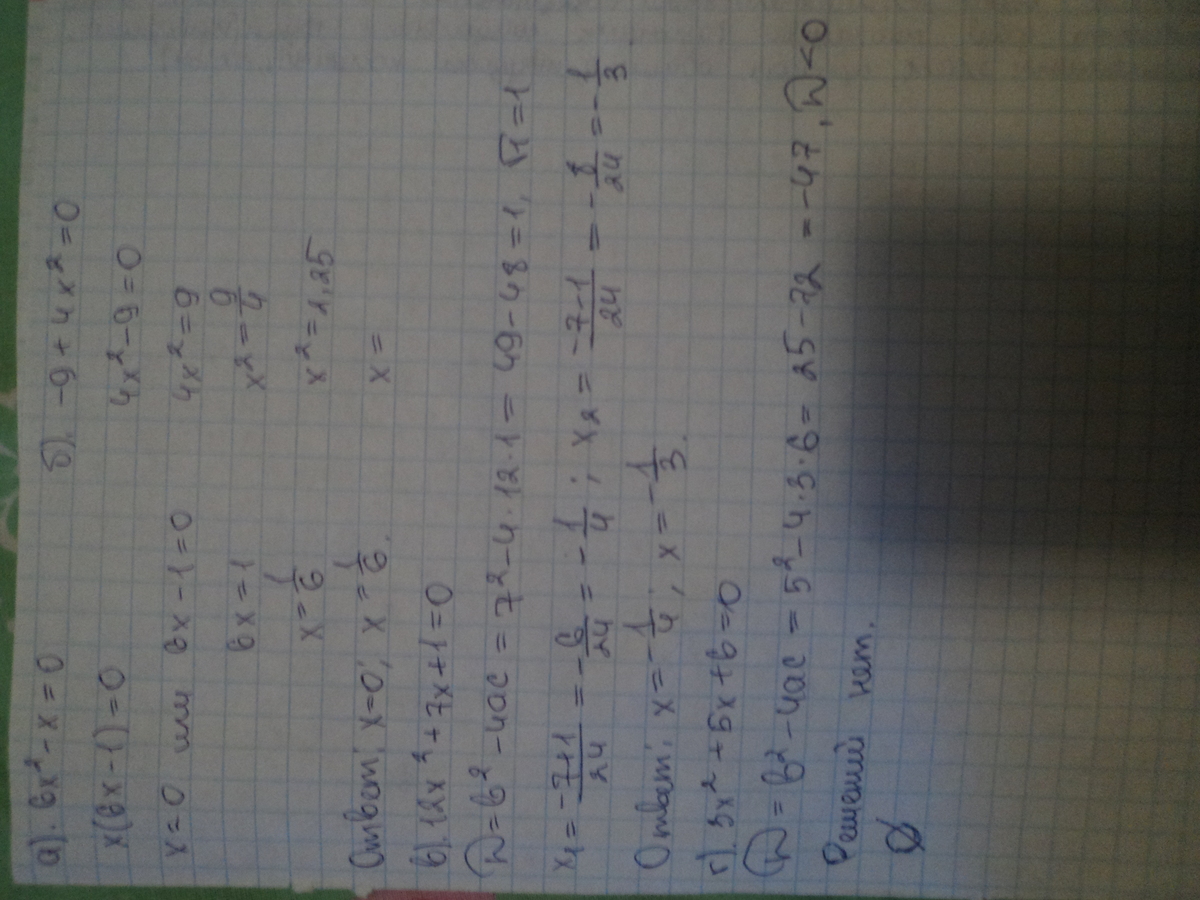 а). 6x² - x = 0
x(6x - 1) = 0
x = 0 или 6x - 1 = 0
6x = 1
x = 1/6
Ответ: x = 0; x = 1/6.
б). -9 + 4x² = 0
4x² - 9 = 0
4x² = 9
x² = 9/4
x² = 1,25
x =
в). 12x² + 7x + 1 = 0
D = b² - 4ac = 7² - 4·12·1 = 49 - 48 = 1, √1 = 1
x₁ = (-7+1)/24 = -6/24 = -1/4; x₂ = (-7-1)/24 = -8/24 = -1/3
Ответ: x = -1/4; x = -1/3.
г). 3x² + 5x + 6 = 0
D = b² - 4ac = 5² - 4·3·6 = 25 - 72 = -47, D < 0
Решений нет.
∅